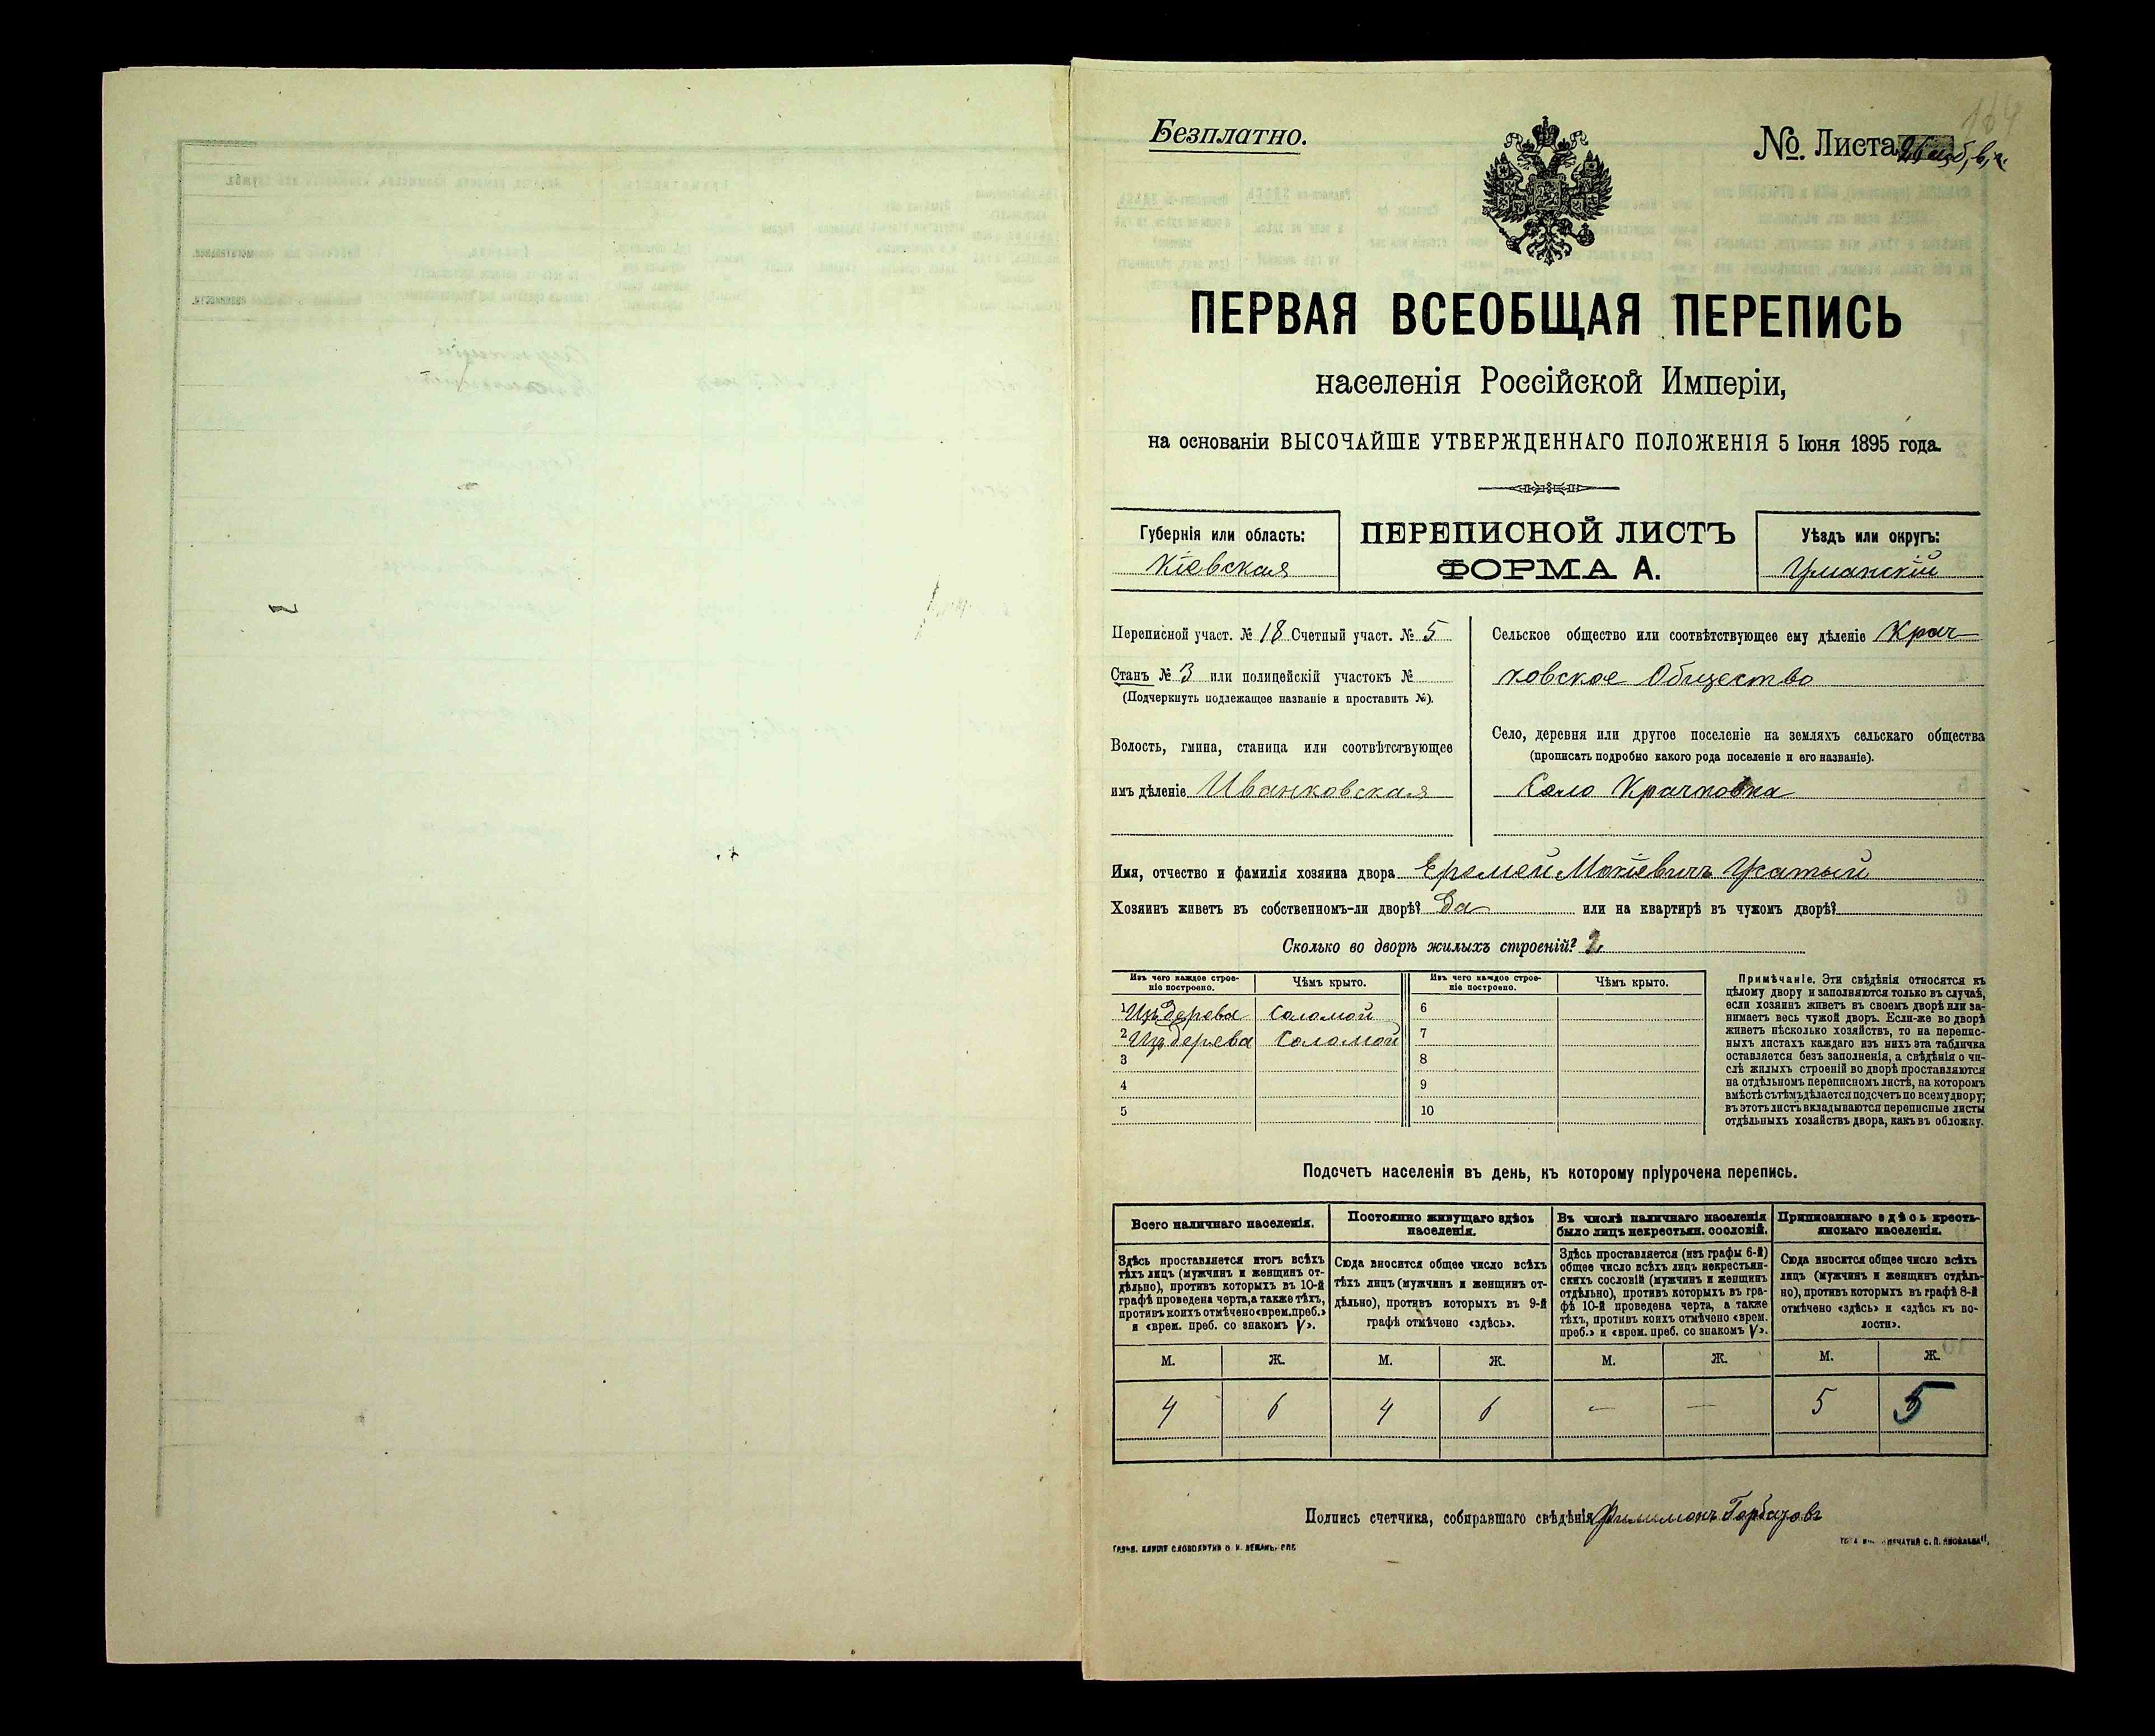 164
Безплатно.
№ Листа
ПЕРВАЯ ВСЕОБЩАЯ ПЕРЕПИСЬ
населенія Россійской Имперіи,
на основаніи ВЫСОЧАЙШЕ УТВЕРЖДЕННАГО ПОЛОЖЕНІЯ 5 Іюня 1895 года.
Губернія или область:
Кіевская
ПЕРЕПИСНОЙ ЛИСТЪ
ФОРМА А.
Уѣздъ или округъ:
Уманскій
Переписной участ. № 18 Счетный участ. № 5
Станъ № 3 или полицейскій участокъ №
(Подчеркнуть подлежащее названіе и проставить №).
Волость, гмина, станица или соотвѣтствующее
имъ дѣленіе Иванковская
Сельское общество или соотвѣтствующее ему дѣленіе Крач
ковское Общество
Село, деревня или другое поселеніе на земляхъ сельскаго общества
(прописать подробно какого рода поселеніе и его названіе).
Село Крачковка
Имя, отчество и фамилія хозяина двора Еремей Мокіевичъ Усатый
Хозяинъ живетъ въ собственномъ-ли дворѣ? Да или на квартирѣ въ чужомъ дворѣ?
Сколько во дворѣ жилыхъ строеній? 2
Изъ чего каждое строе-
ніе построено.
Чѣмъ крыто.
Изъ чего каждое строе-
ніе построено.
Чѣмъ крыто.
1 Изъ дерева Соломой 6
2 Изъ дерева Соломой 7
3 8
4 9
5 10
Примѣчаніе. Эти свѣдѣнія относятся къ
цѣлому двору и заполняются только въ случаѣ,
если хозяинъ живетъ въ своемъ дворѣ или за-
нимаетъ весь чужой дворъ. Если-же во дворѣ
живетъ нѣсколько хозяйствъ, то на перепис-
ныхъ листахъ каждаго изъ нихъ эта табличка
оставляется безъ заполненія, а свѣдѣнія о чи-
слѣ жилыхъ строеній во дворѣ проставляются
на отдѣльномъ переписномъ листѣ, на которомъ
вмѣстѣ съ тѣмъ дѣлается подсчетъ по всему двору;
въ этотъ листъ вкладываются переписные листы
отдѣльныхъ хозяйствъ двора, какъ въ обложку.
Подсчетъ населенія въ день, къ которому пріурочена перепись.
Всего наличнаго населенія.
Здѣсь проставляется итогъ всѣхъ
тѣхъ лицъ (мужчинъ и женщинъ от-
дѣльно), противъ которыхъ въ 10-й
графѣ проведена черта, а также тѣхъ,
противъ коихъ отмѣчено «врем. преб.»
и «врем. преб. со знакомъ V».
Постоянно живущаго здѣсь
населенія.
Сюда вносится общее число всѣхъ
тѣхъ лицъ (мужчинъ и женщинъ от-
дѣльно), противъ которыхъ въ 9-й
графѣ отмѣчено «здѣсь».
Въ числѣ наличнаго населенія
было лицъ некрестьян. сословій.
Здѣсь проставляется (изъ графы 6-й)
общее число всѣхъ лицъ некрестьян-
скихъ сословій (мужчинъ и женщинъ
отдѣльно), противъ которыхъ въ гра-
фѣ 10-й проведена черта, а также
тѣхъ, противъ коихъ отмѣчено «врем.
преб.» и «врем. преб. со знакомъ V».
Приписаннаго здѣсь кресть-
янскаго населенія.
Сюда вносится общее число всѣхъ
лицъ (мужчинъ и женщинъ отдѣль-
но), противъ которыхъ въ графѣ 8-й
отмѣчено «здѣсь» и «здѣсь къ во-
лости».
М. Ж. М. Ж. М. Ж. М. Ж.
4 6 4 6 — — 5 5
Подпись счетчика, собиравшаго свѣдѣнія Филимонъ Горбачовъ